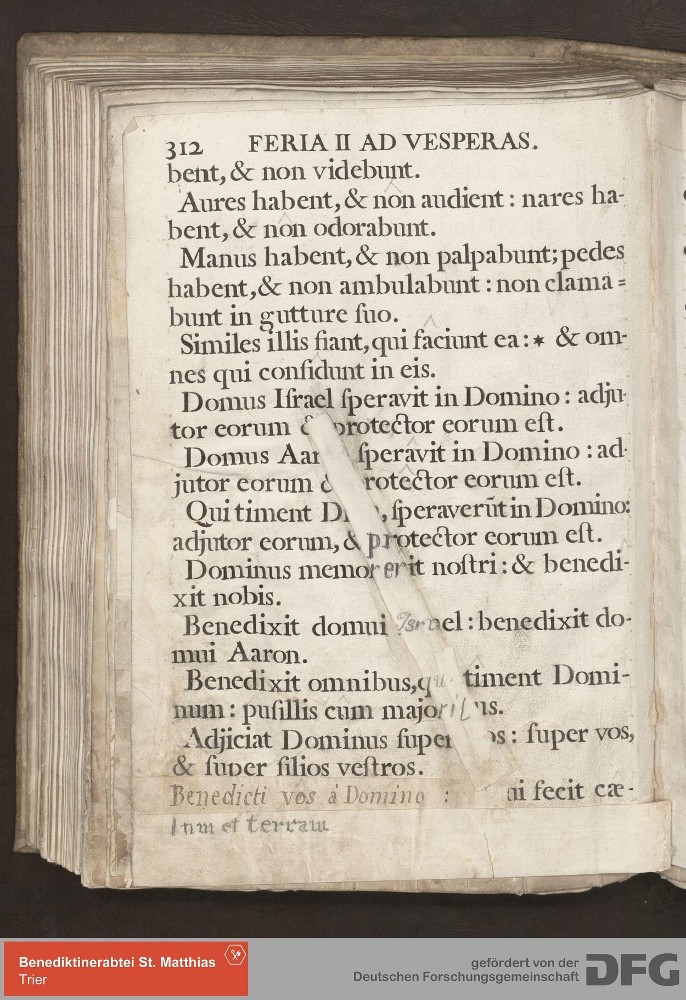 312 FERIA II AD VESPERAS.
bent, & non videbunt.
Aures habent, & non audient : nares ha-
bent, & non odorabunt.
Manus habent, & non palpabunt; pedes
habent, & non ambulabunt : non clama=
bunt in gutture ſuo.
Similes illis fiant, qui faciunt ea : * & om-
nes qui confidunt in eis.
Domus Iſrael ſperavit in Domino : adju-
tor eorum & protector eorum eſt.
Domus Aar ſperavit in Domino : ad-
jutor eorum & protector eorum eſt.
Qui timent D , ſperaverūt in Domino:
adjutor eorum, & protector eorum eſt.
Dominus memor erit noſtri : & benedi-
xit nobis.
Benedixit domui Israel : benedixit do-
mui Aaron.
Benedixit omnibus, qui timent Domi-
num : puſillis cum majoribus.
Adjiciat Dominus ſuper os : ſuper vos,
& ſuper filios veſtros.
Benedicti vos à Domino : ui fecit cæ-
lum et terram
Benediktinerabtei St. Matthias
Trier
gefördert von der
Deutschen Forschungsgemeinschaft
DFG